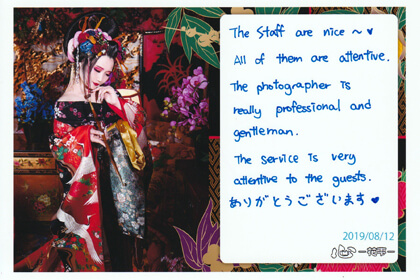 The Staff are nice ~ ♥
All of them are attentive.
The photographer is
really professional and
gentleman.
The service is very
attentive to the guests.
ありがとうございます ♥
2019/08/12